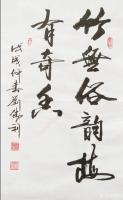 竹無俗韻梅
有奇香
戊戌仲春劉偉利